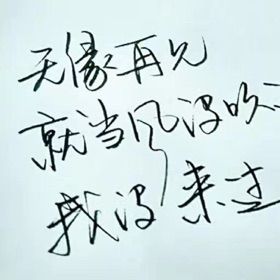 无缘再见
就当风没吹过
我没来过